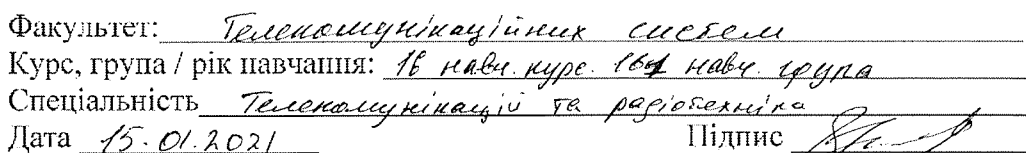 Факультет: Телекомунікаційних систем
Курс, група / рік навчання: 16 навч. курс. 161 навч. група
Спеціальність Телекомунікацій та радіотехніка
Дата 15.01.2021 Підпис